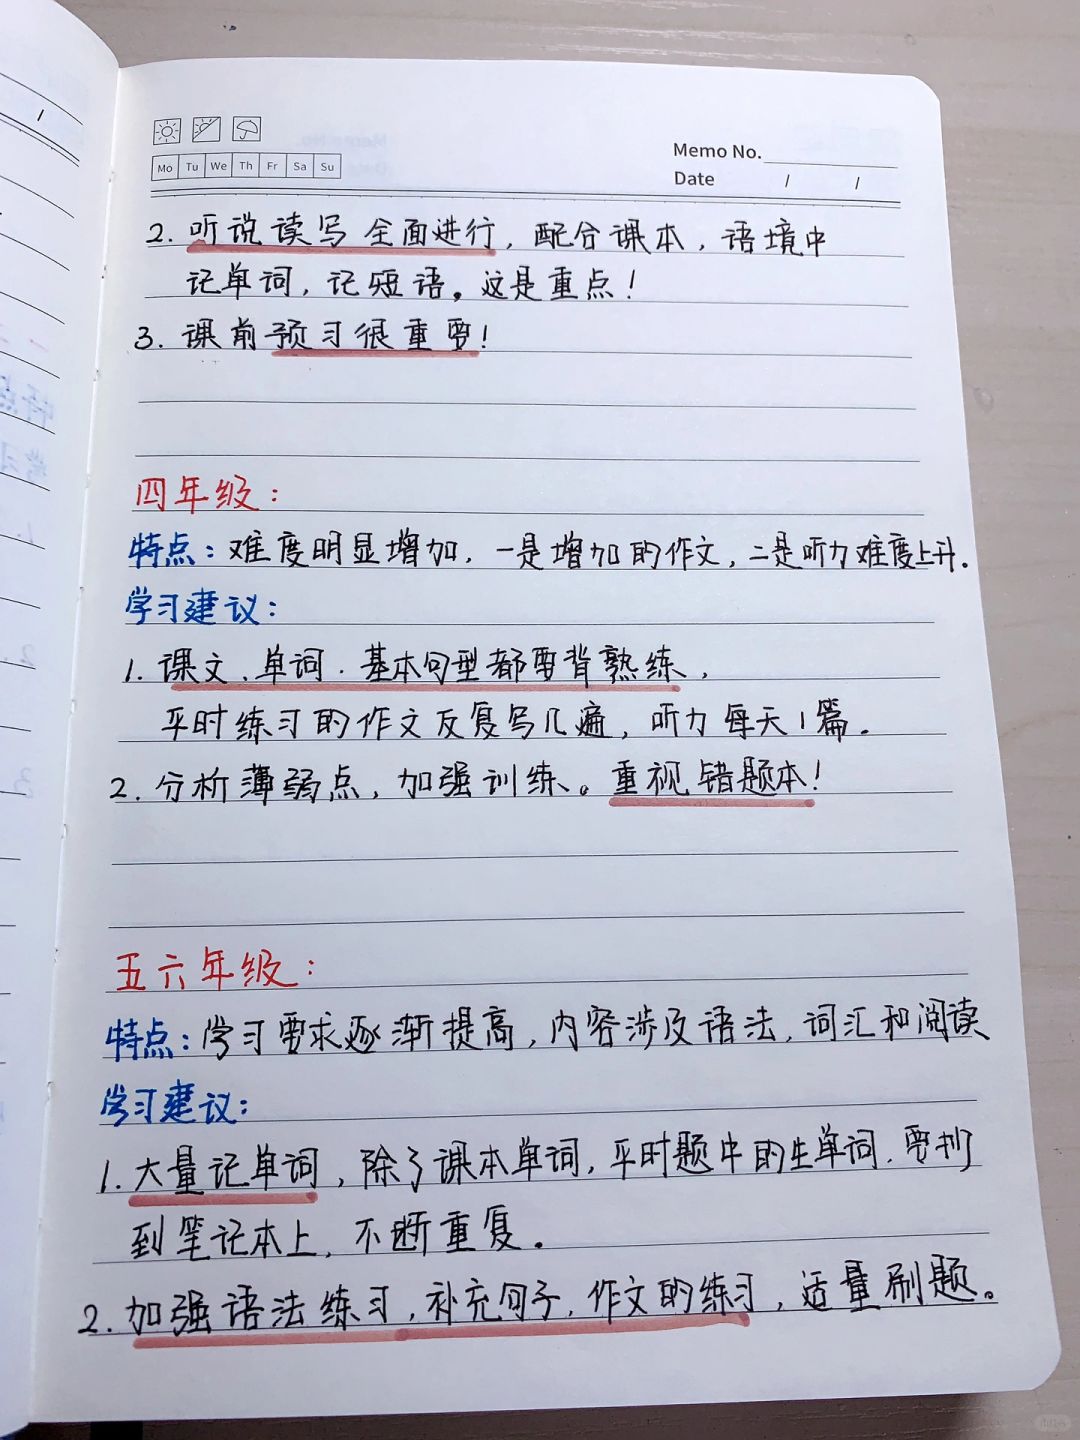 Mo Tu We Th Fr Sa Su
Memo No.
Date / /
2. 听说读写全面进行，配合课本，语境中
记单词，记短语。这是重点！
3. 课前预习很重要！
四年级：
特点：难度明显增加，一是增加的作文，二是听力难度上升.
学习建议：
1. 课文、单词．基本句型都要背熟练，
平时练习的作文反复写几遍，听力每天1篇.
2. 分析薄弱点，加强训练。重视错题本！
五六年级：
特点：学习要求逐渐提高，内容涉及语法，词汇和阅读
学习建议：
1. 大量记单词，除了课本单词，平时题中的生单词．要抄
到笔记本上，不断重复。
2. 加强语法练习，补充句子，作文的练习，适量刷题。